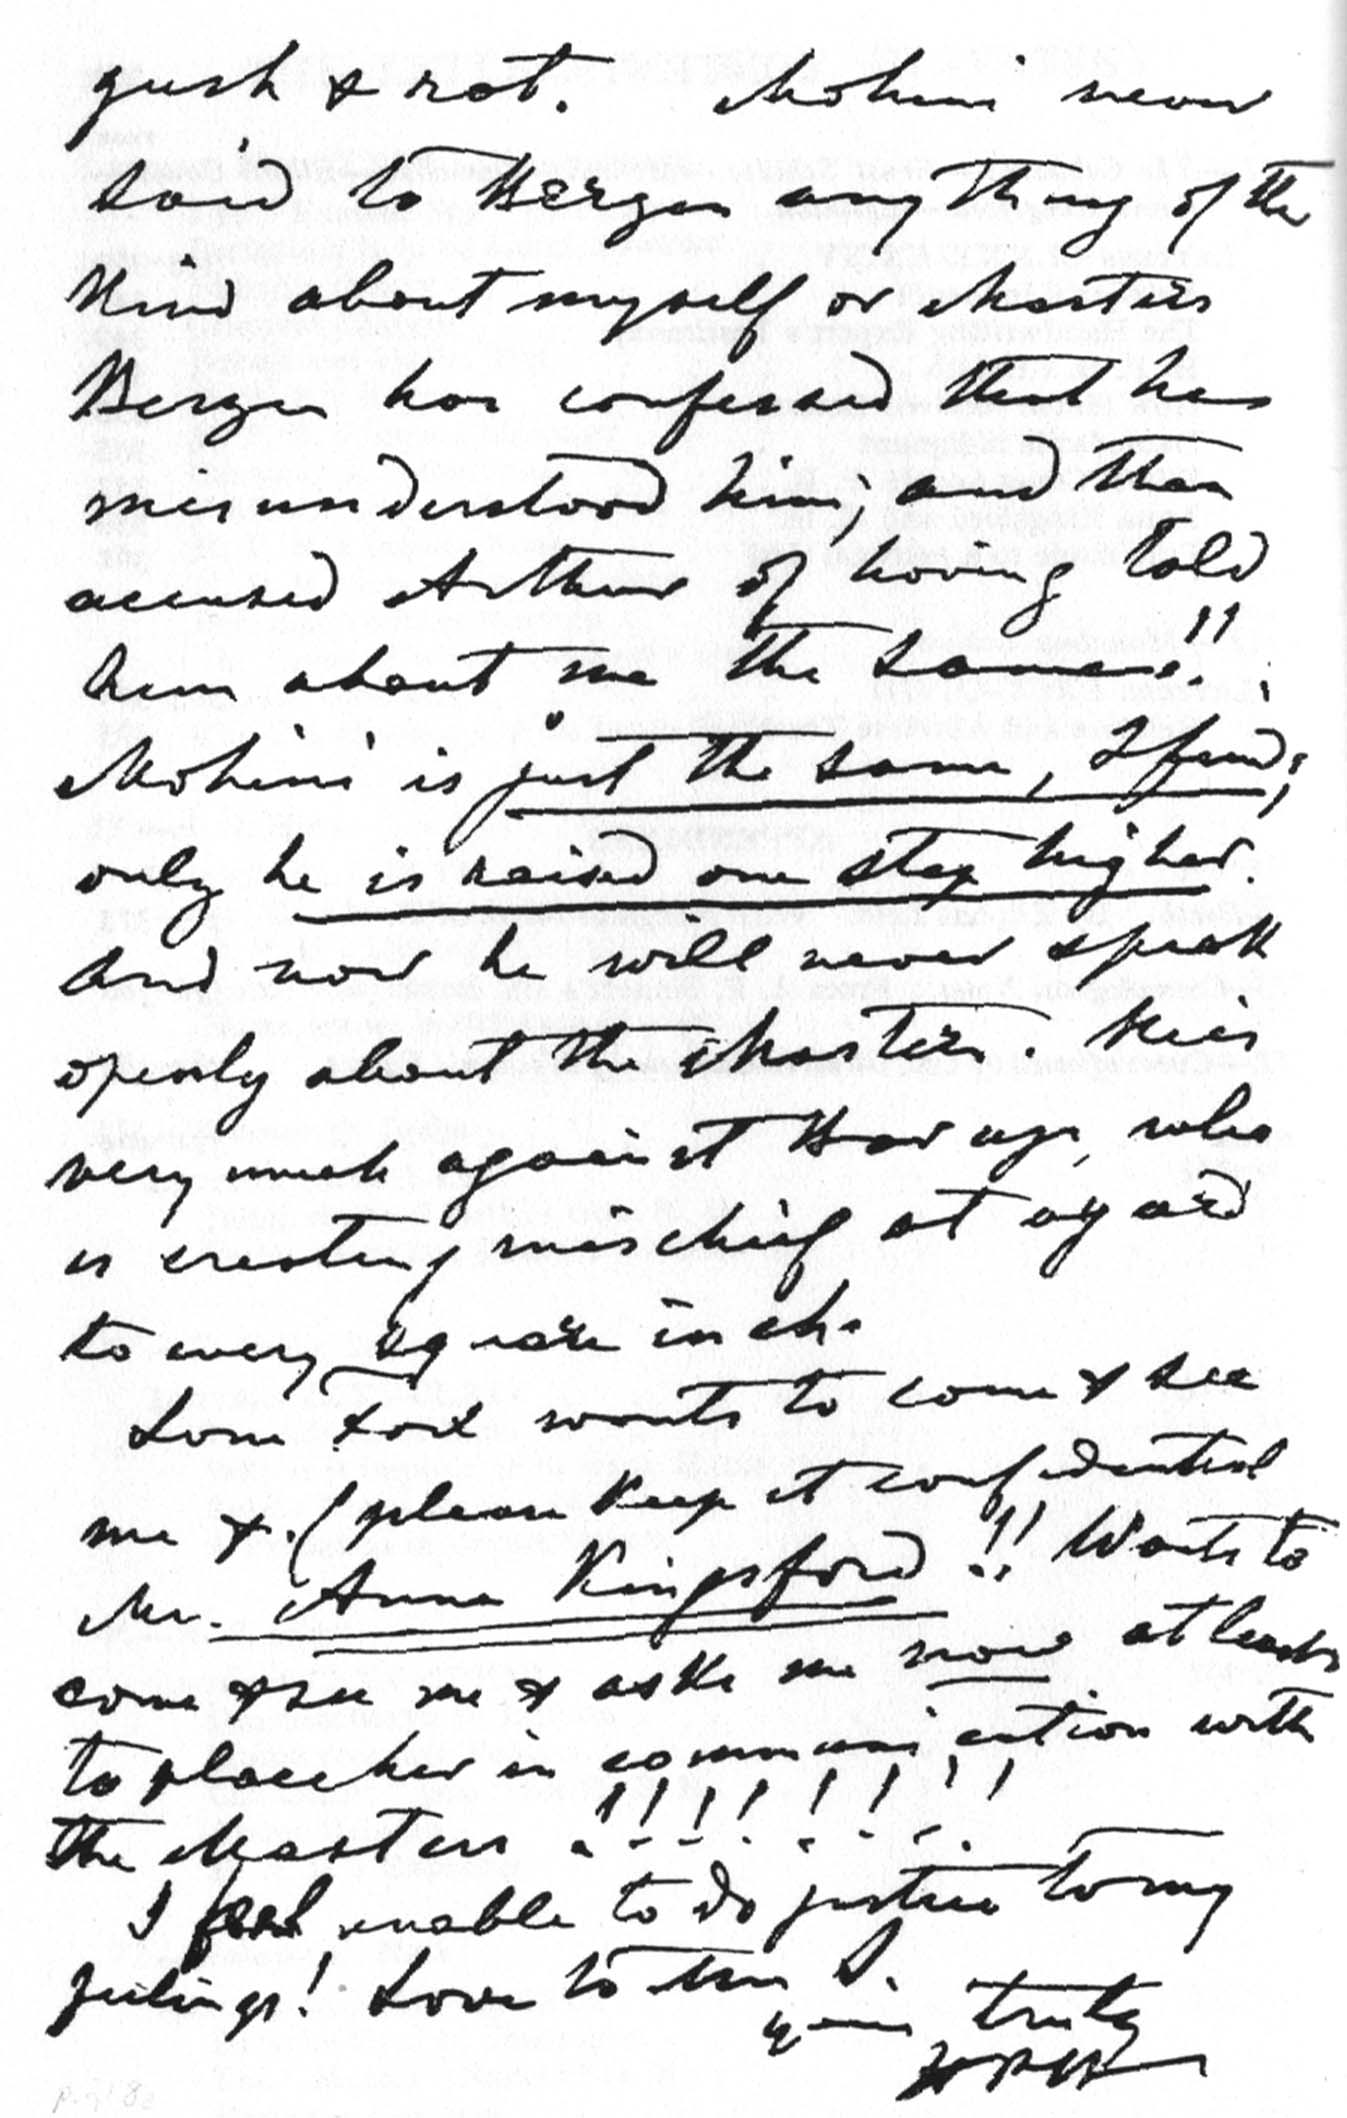 gush & rot. Mohini never
said to Bergen any thing of the
Kind about myself or Masters
Bergen has confessed that he
misunderstood him; and then
accused Arthur of having told
him about me the same!!
Mohini is just the same, I find;
only he is raised one step higher.
and now he will never speak
openly about the Masters. He is
very much against who
is creating mischief at
to every inch.
Lane Fox wants to come & see
me & (please Keep it confidential
Mr. Anna Kingsford) !! Wants to
come & see me & asks me now at least
to place her in communication with
the Masters !!!!!!!!
I feel unable to do justice to my
feelings! Love to Mrs S.
yours truly
HPB